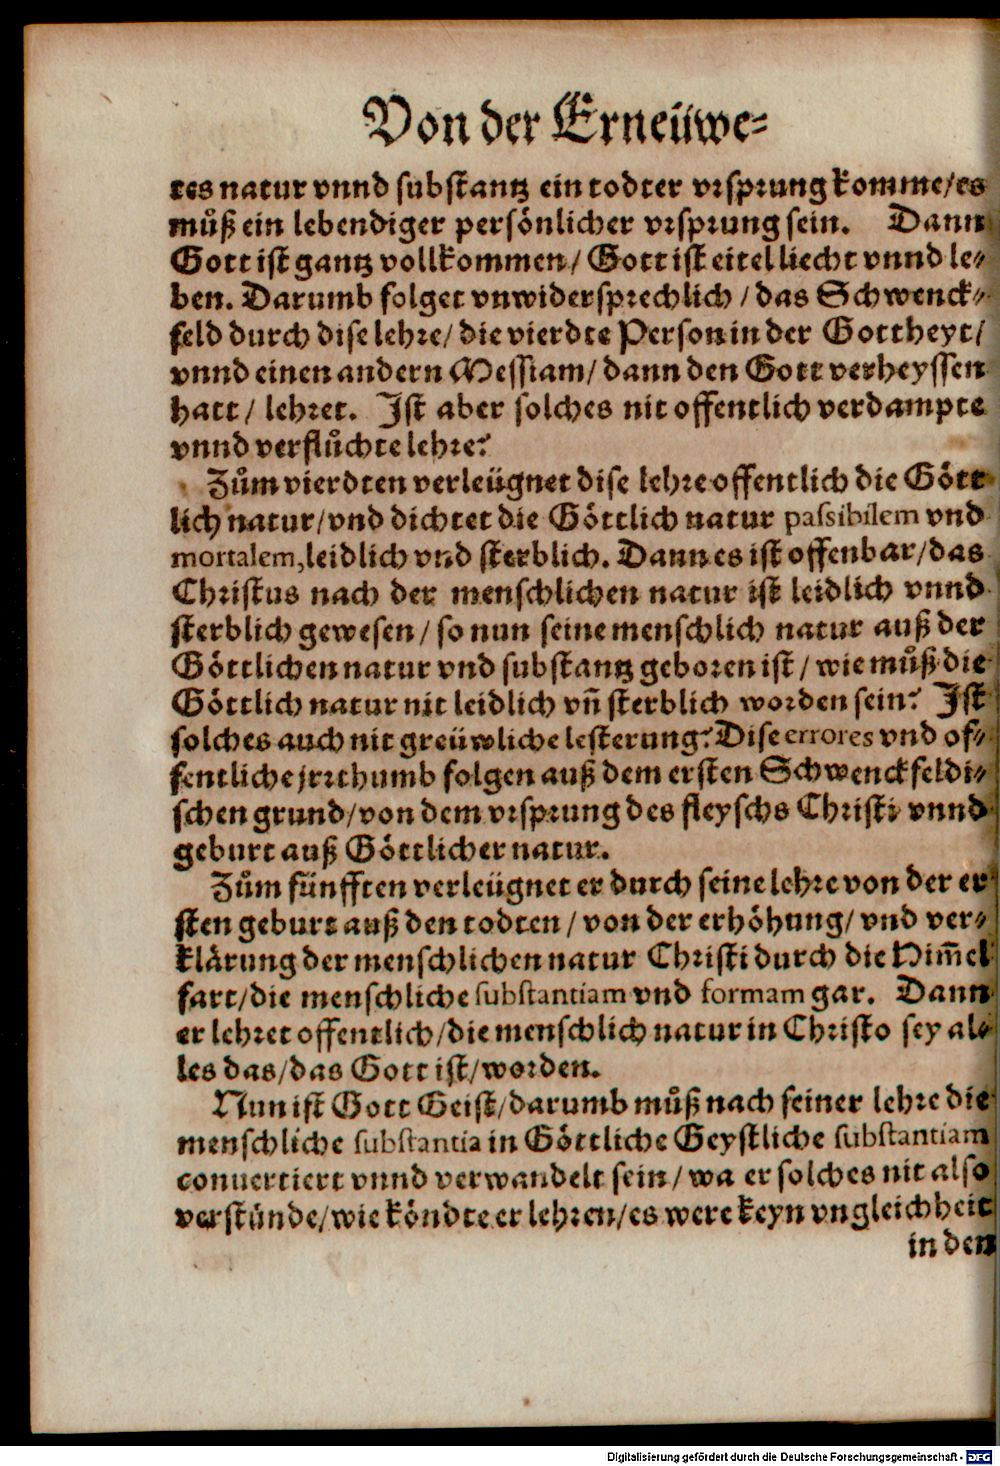 Von der Erneüwe-
tes natur vnnd substantz ein todter vrsprung komme/es
můß ein lebendiger persönlicher vrsprung sein. Dann
Gott ist gantz vollkommen/ Gott ist eitel liecht vnnd le-
ben. Darumb folget vnwidersprechlich / das Schwenck-
feld durch dise lehre/ die vierdte Person in der Gottheyt/
vnnd einen andern Messiam/ dann den Gott verheyssen
hatt/ lehret. Ist aber solches nit offentlich verdampte
vnnd verflůchte lehre?
Zům vierdten verleügnet dise lehre offentlich die Gött
lich natur/vnd dichtet die Göttlich natur passibilem vnd
mortalem,leidlich vnd sterblich. Dann es ist offenbar/das
Christus nach der menschlichen natur ist leidlich vnnd
sterblich gewesen/ so nun seine menschlich natur auß der
Göttlichen natur vnd substantz geboren ist/ wie můß die
Göttlich natur nit leidlich vñ sterblich worden sein? Ist
solches auch nit greüwliche lesterung? Dise errores vnd of-
fentliche jrrthumb folgen auß dem ersten Schwenckfeldi-
schen grund/von dem vrsprung des fleyschs Christi vnnd
geburt auß Göttlicher natur.
Zům fünfften verleügnet er durch seine lehre von der er
sten geburt auß den todten/ von der erhöhung/ vnd ver-
klärung der menschlichen natur Christi durch die Him̃el
fart/die menschliche substantiam vnd formam gar. Dann
er lehret offentlich/die menschlich natur in Christo sey al-
les das/das Gott ist/worden.
Nun ist Gott Geist/darumb můß nach seiner lehre die
menschliche substantia in Göttliche Geystliche substantiam
conuertiert vnnd verwandelt sein/ wa er solches nit also
verstünde/wie köndte er lehren/es were keyn vngleichheit
in den
Digitalisierung gefördert durch die Deutsche Forschungsgemeinschaft - DFG